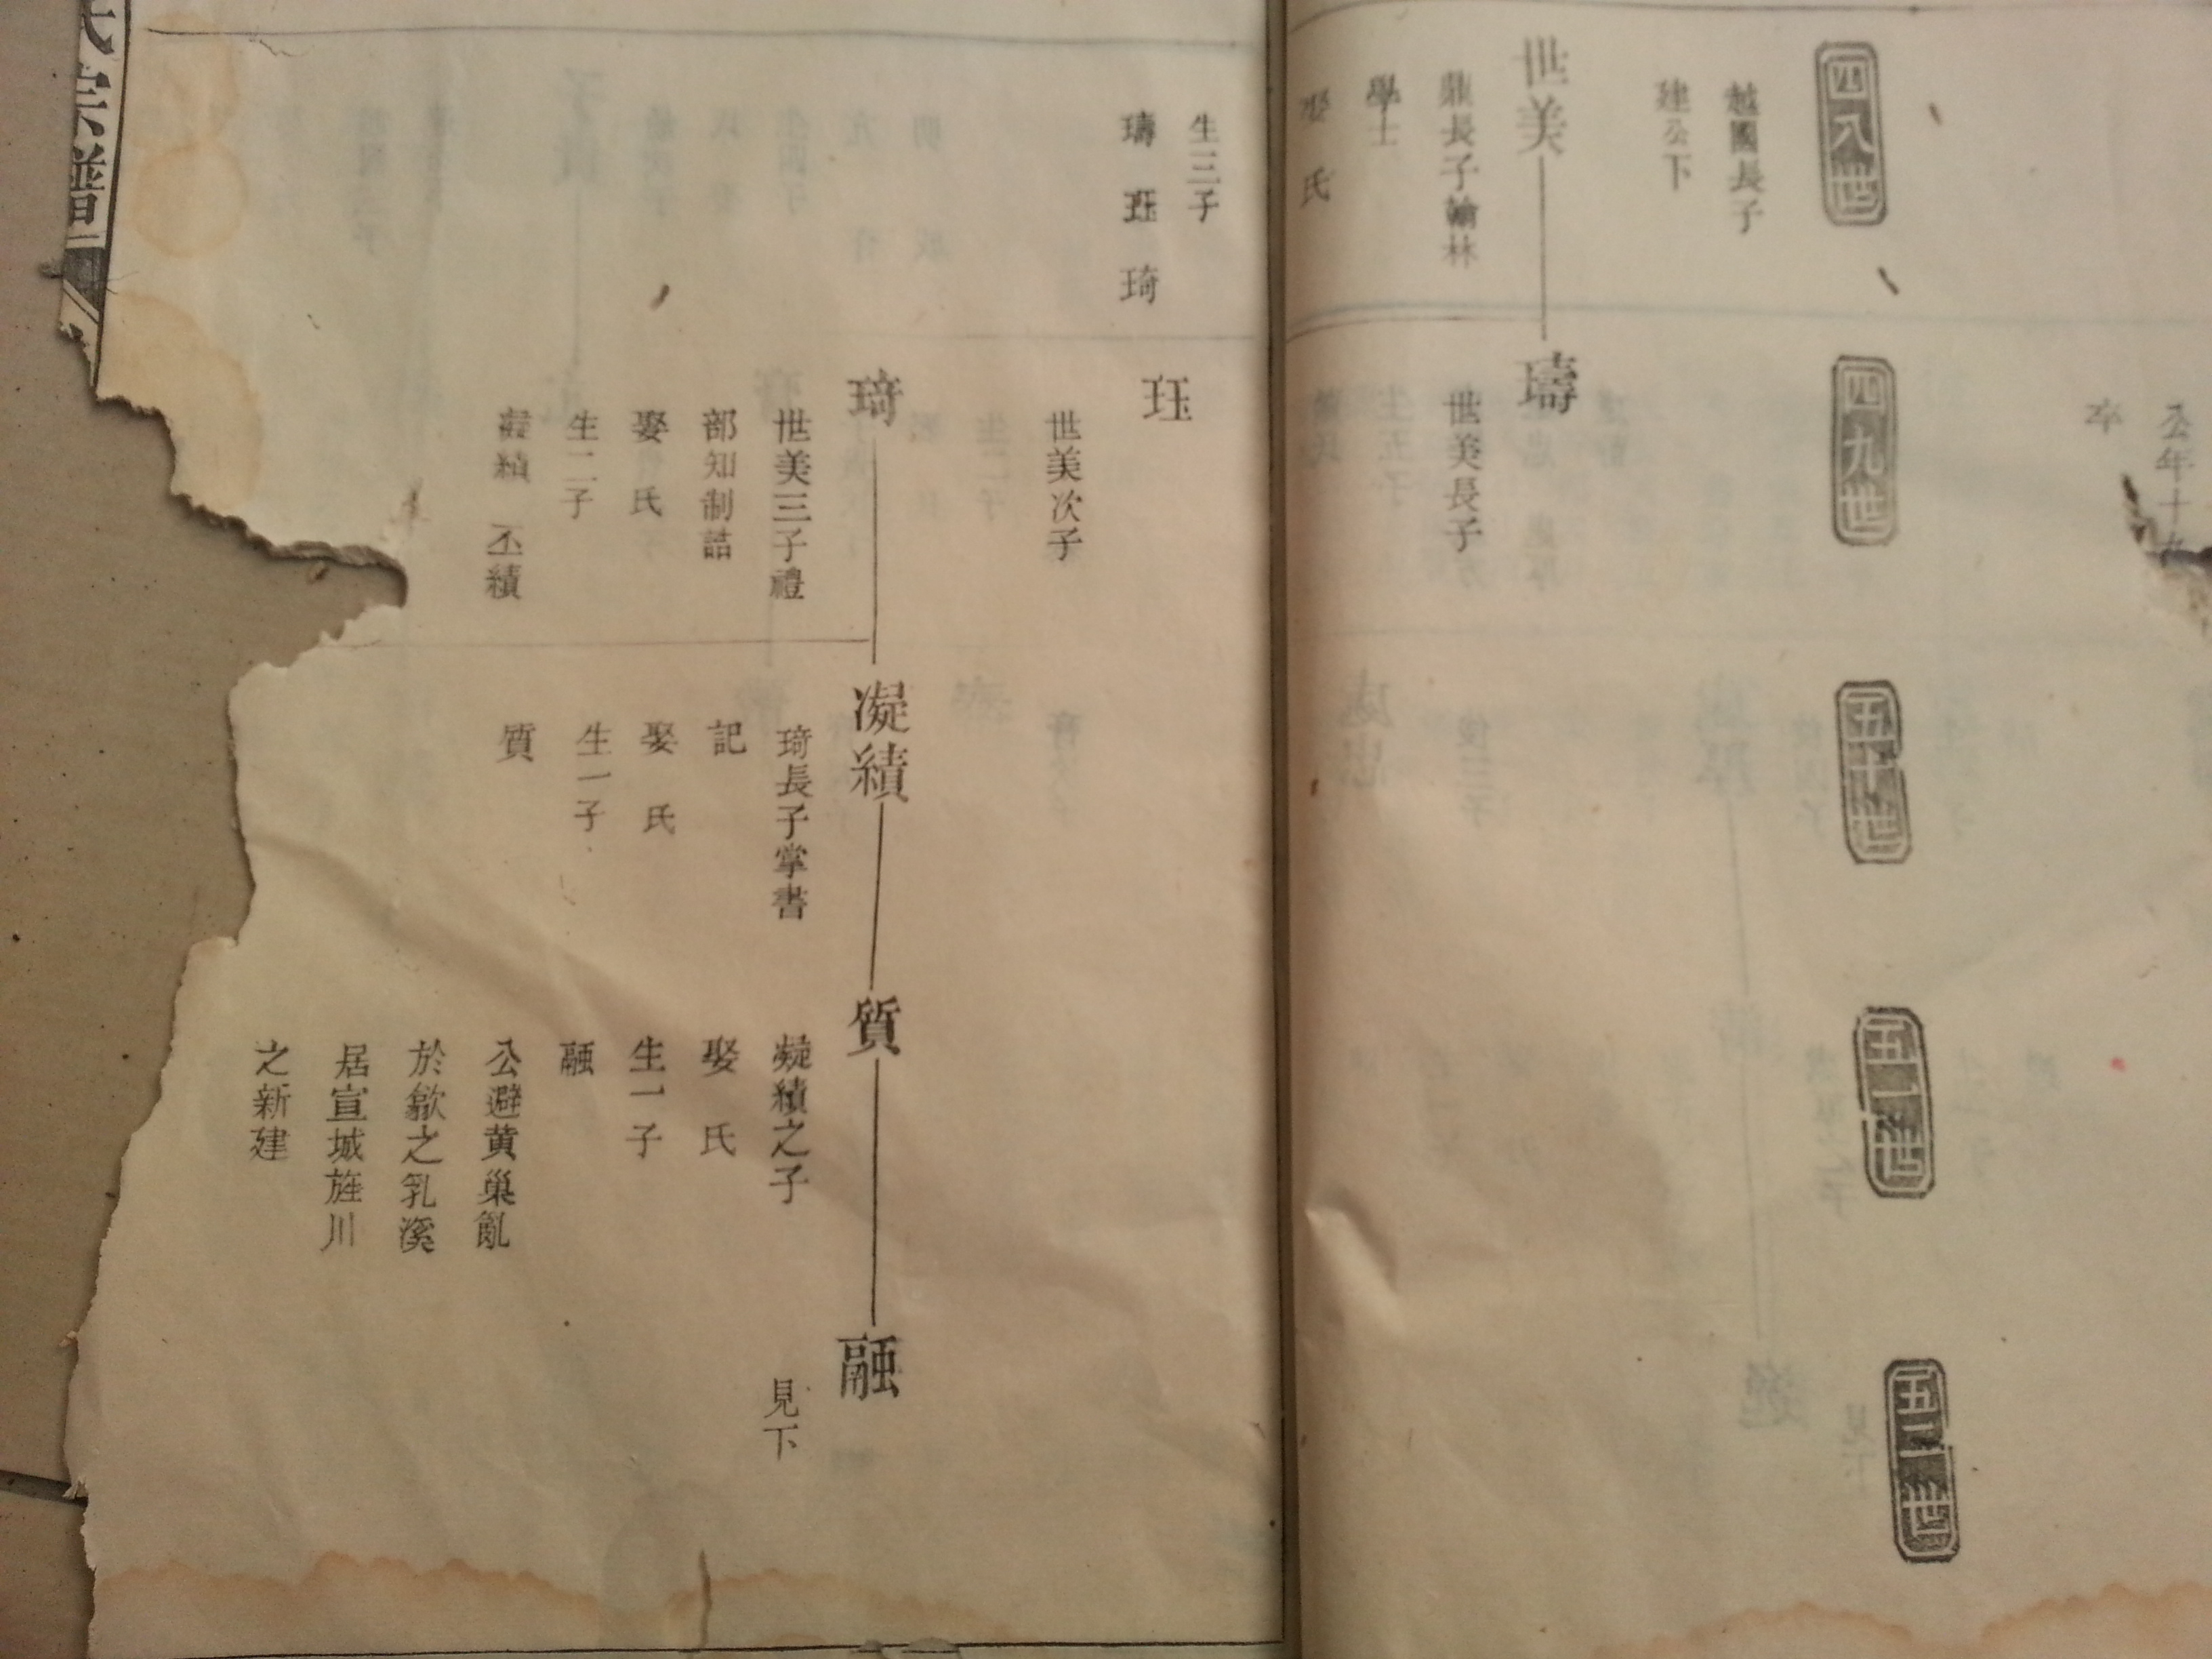 公年十九
卒
四八世
四九世
五十世
五一世
五二世
越國長子
建公下
世美
鼎長子翰林
學士
娶氏
璹
世美長子
生三子
璹 珏 琦
珏
世美次子
琦
世美三子禮
部知制誥
娶氏
生二子
凝績 丕績
凝績
琦長子掌書
記
娶氏
生一子
質
質
凝績之子
娶氏
生一子
融
公避黄巢亂
於歙之乳溪
居宣城旌川
之新建
融
見下
氏宗譜